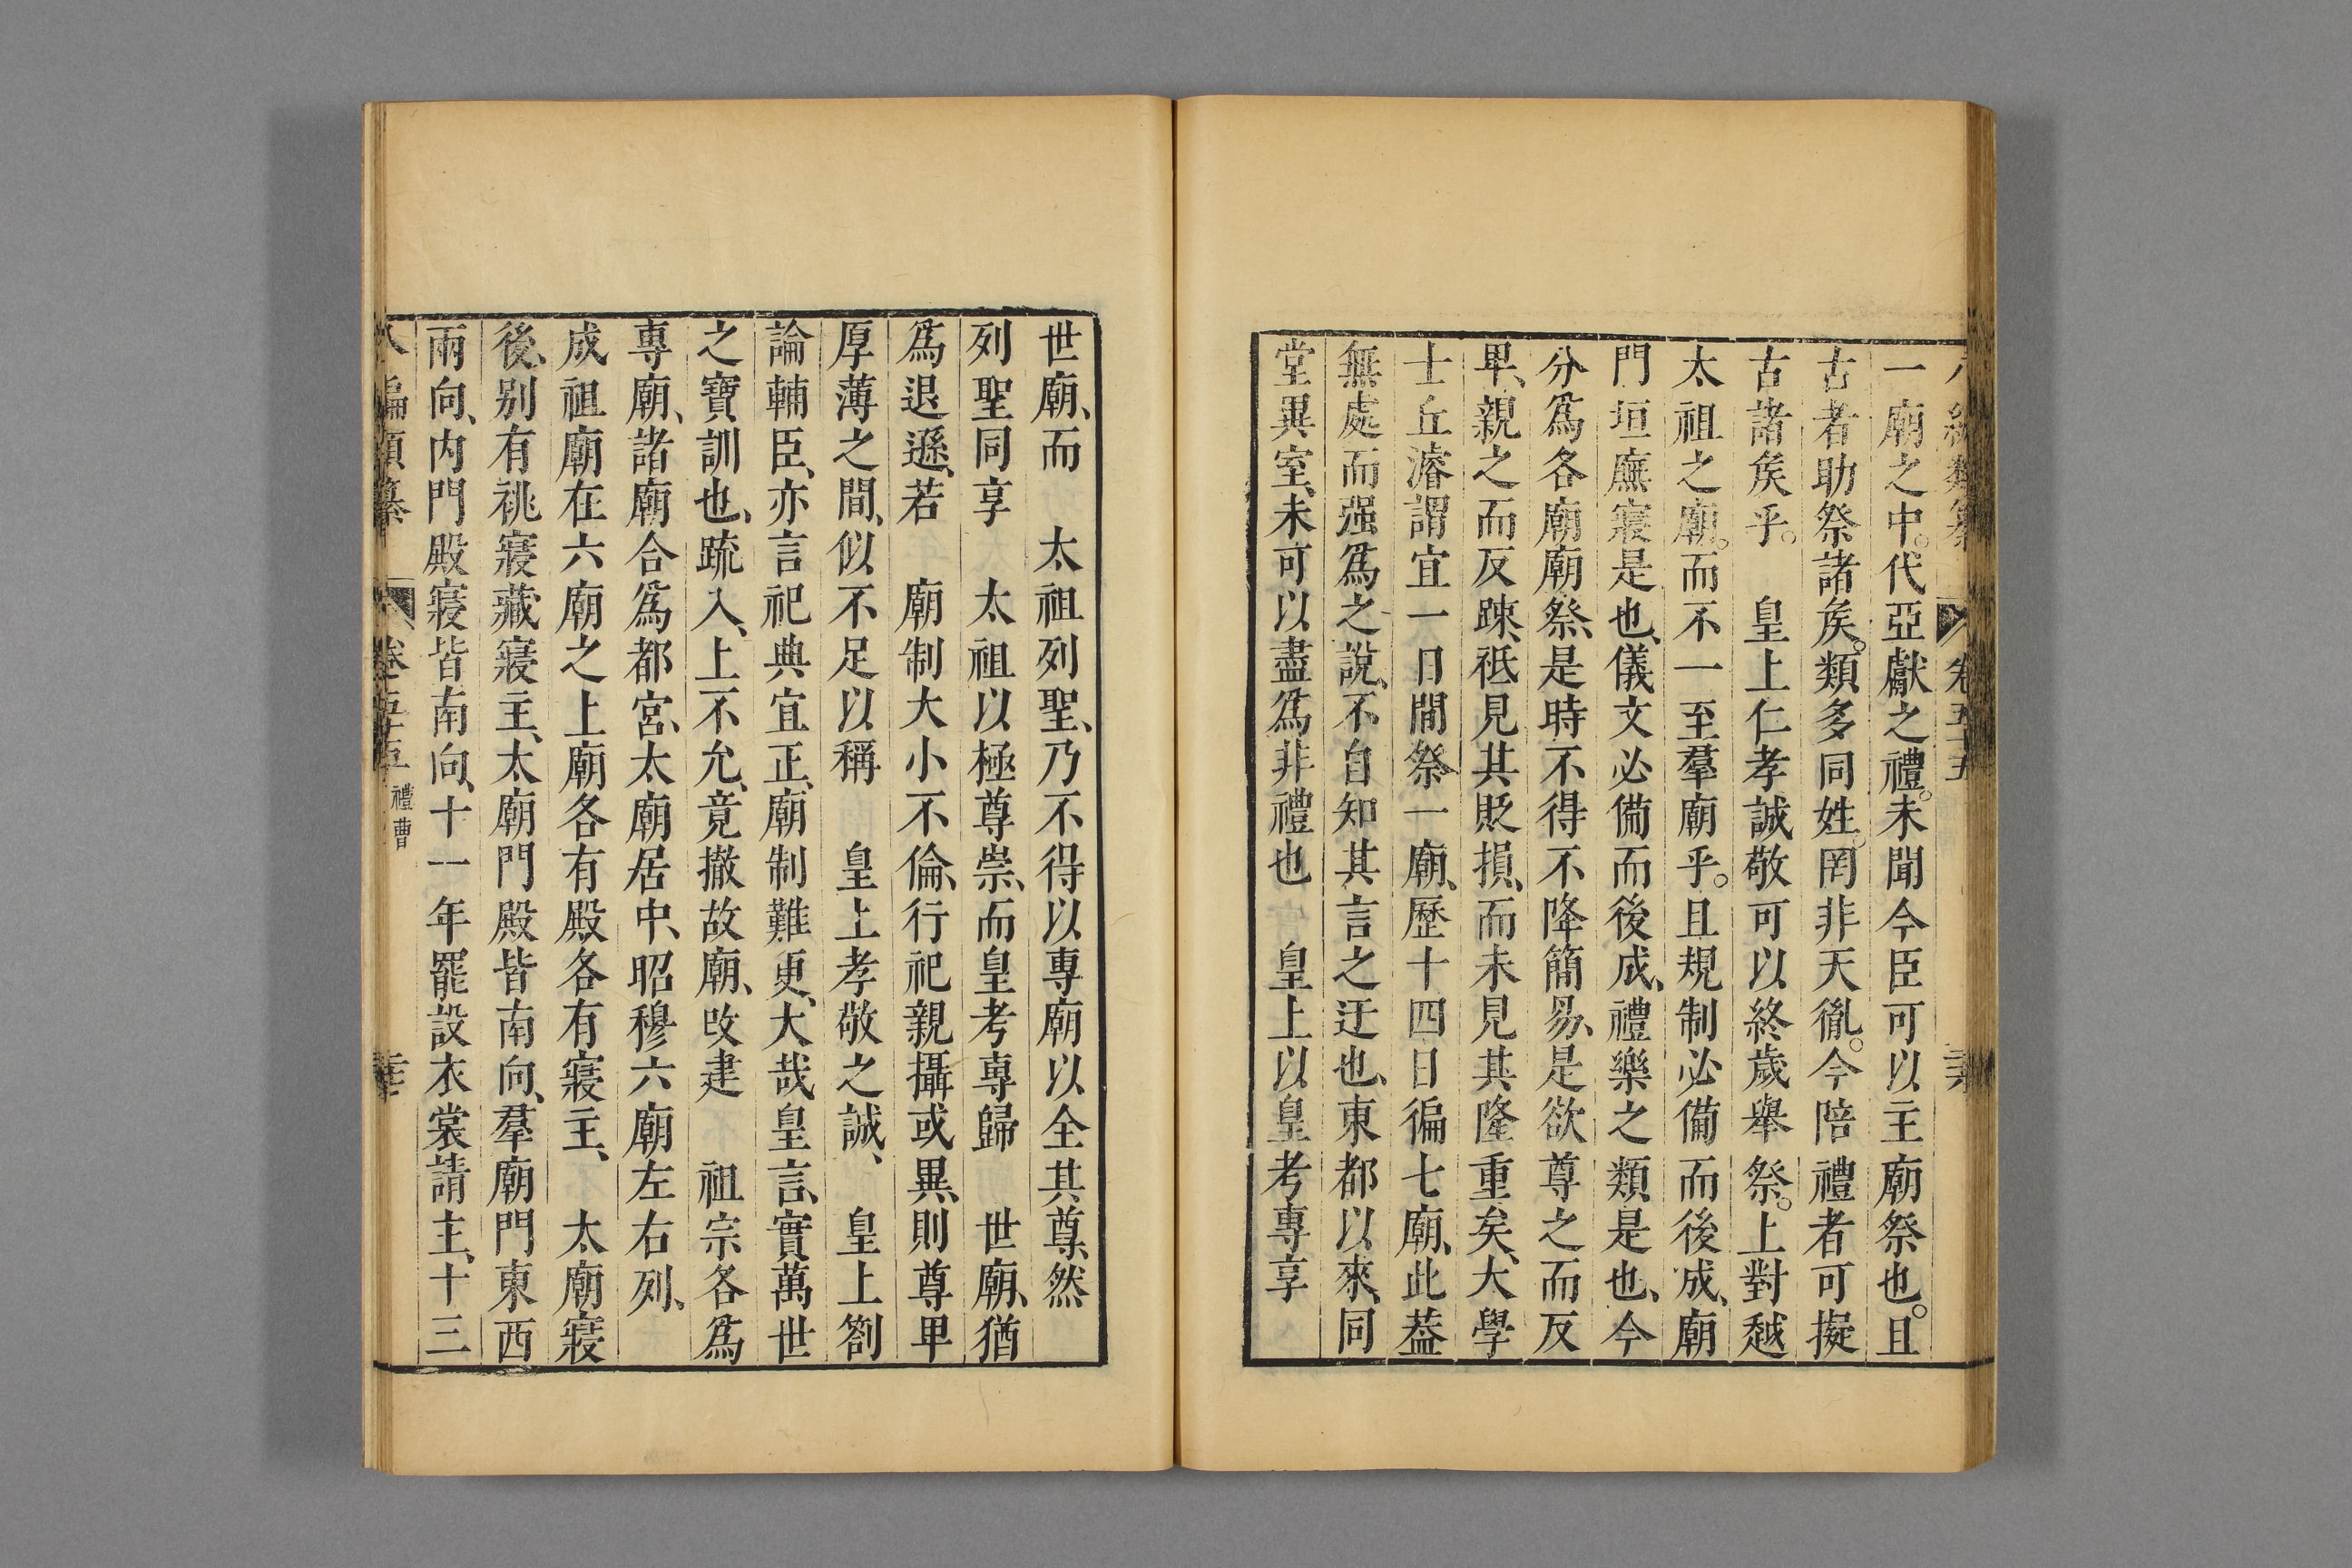 一廟之中。代亞獻之禮。未聞今臣可以主廟祭也。且
古者助祭諸矦。類多同姓。罔非天徹。今陪禮者可擬
古諸矦乎。皇上仁孝誠敬可以終歲舉祭。上對越
太祖之廟。而不一至羣廟乎。且規制必備而後成、廟
門垣廡寢是也、儀文必備而後成、禮樂之類是也、今
分爲各廟廟祭、是時不得不降簡易、是欲尊之而反
卑、親之而反踈、祗見其貶損、而未見其隆重矣、大學
士丘濬謂宜一日間祭一廟、歷十四日徧七廟、此葢
無處而强爲之說、不自知其言之迂也、東都以來、同
堂異室、未可以盡爲非禮也皇上以皇考專享
世廟、而太祖列聖、乃不得以專廟以全其尊、然
列聖同享太祖以極尊崇、而皇考專歸世廟、猶
爲退遜、若廟制大小不倫、行祀親攝或異、則尊卑
厚薄之間、似不足以稱皇上孝敬之誠、皇上劄
論輔臣、亦言祀典宜正、廟制難更、大哉皇言、實萬世
之寶訓也、疏入、上不允、竟撤故廟、攺建祖宗各爲
專廟、諸廟合爲都宮、太廟居中、昭穆六廟左右列、
成祖廟在六廟之上廟各有殿各有寢主、太廟寢
後、别有祧寢藏寢主、太廟門殿皆南向、羣廟門東西
兩向、内門殿寢皆南向、十一年罷設衣裳請主、十三
卷五十五 禮曹